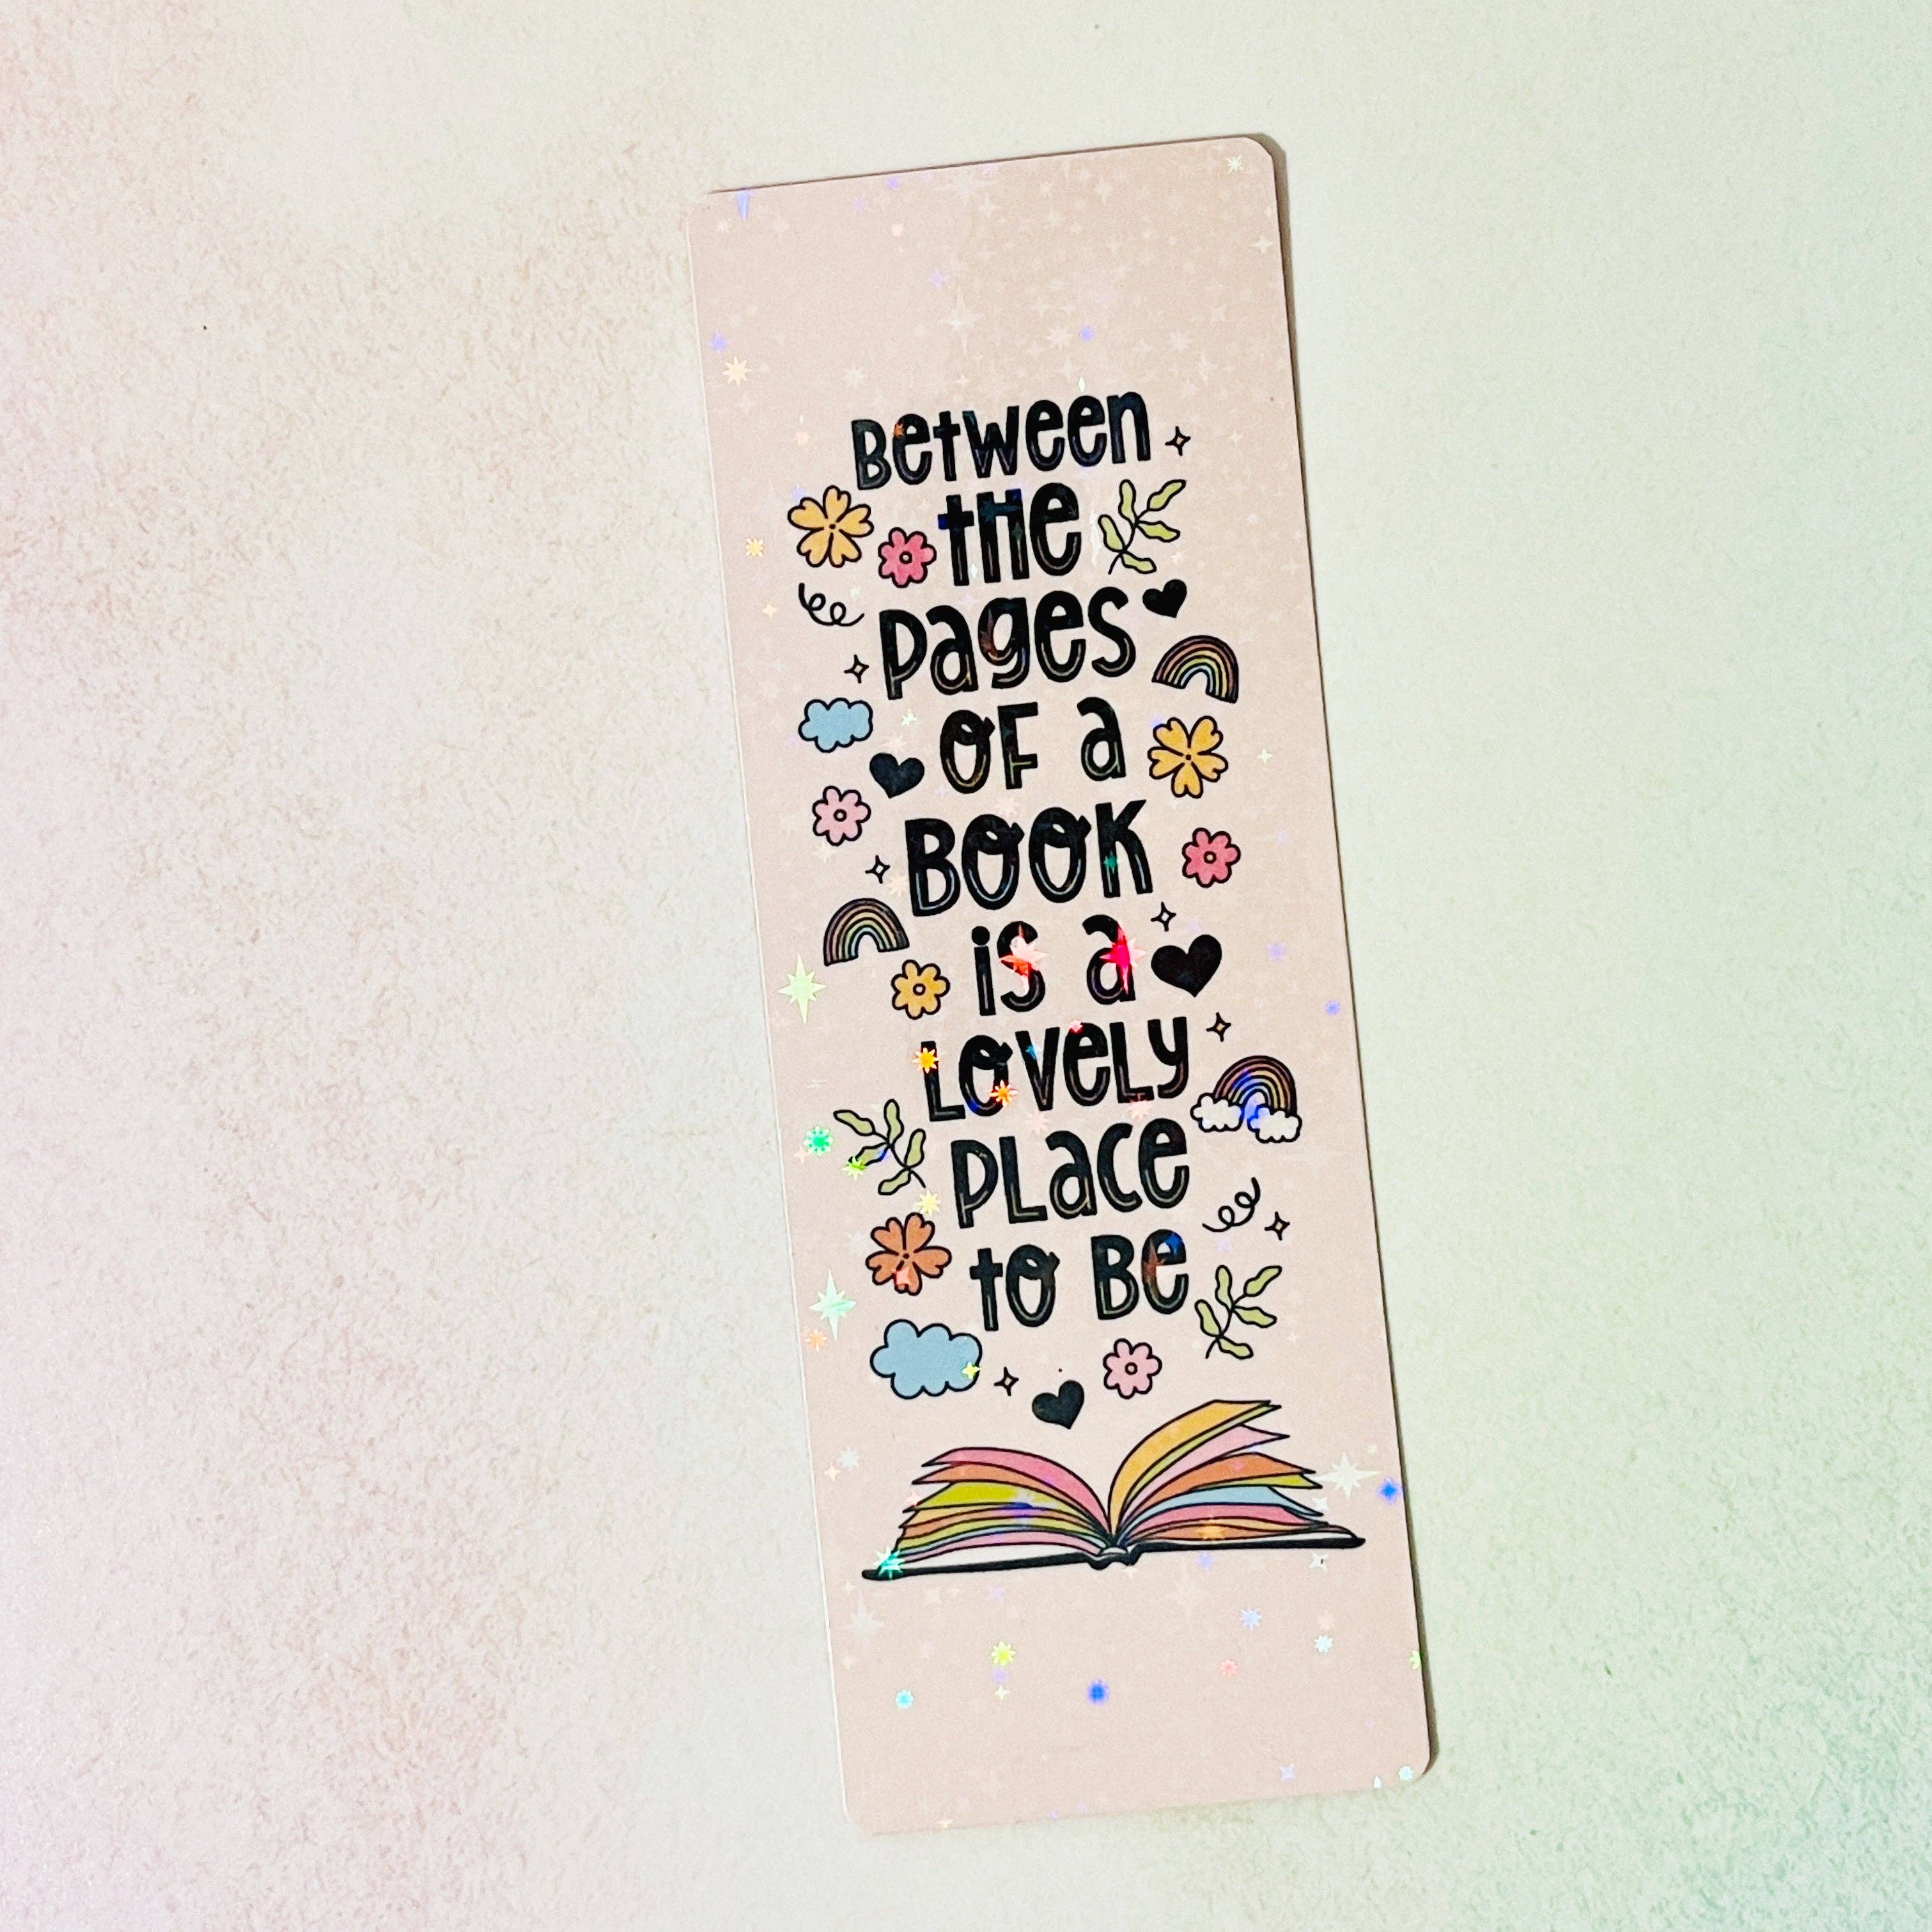 Between
the
pages
of a
book
is a
lovely
place
to be